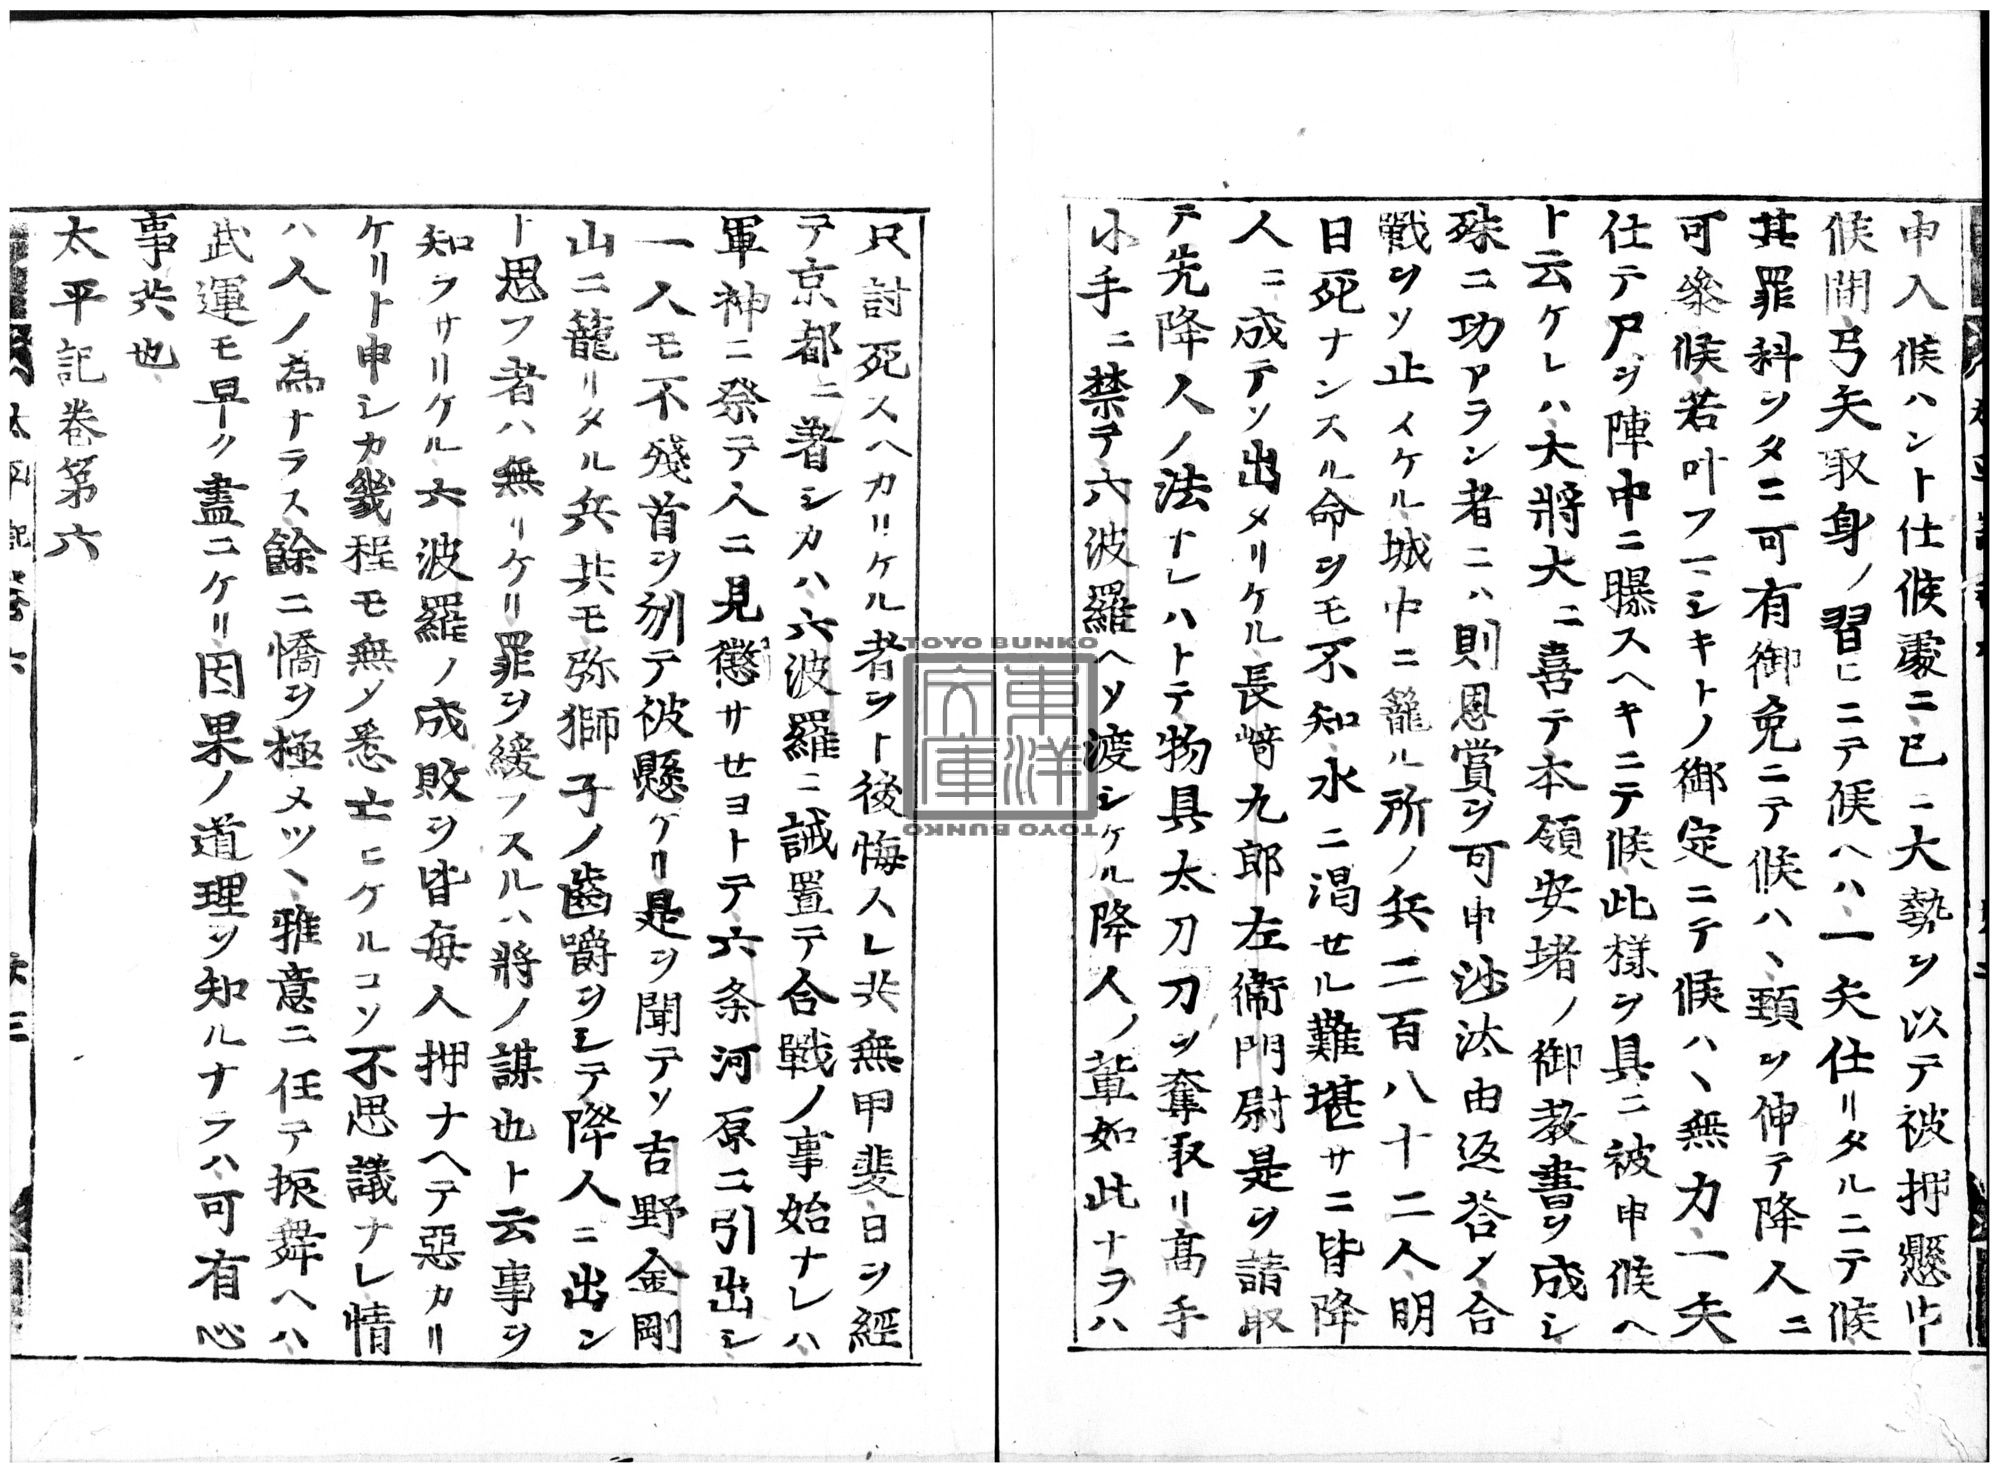 申入候ハント仕候處ニ已ニ大勢ヲ以テ被押懸申
候間弓矢取身ノ習ヒニテ候ヘハ一矢仕リタルニテ候
其罪科ヲタニ可有御免ニテ候ハヽ頸ヲ伸テ降人ニ
可參候若叶フマシキトノ御定ニテ候ハヽ無力一矢
仕テ尸ヲ陣中ニ曝スヘキニテ候此樣ヲ具ニ被申候ヘ
ト云ケレハ大將大ニ喜テ本領安堵ノ御教書ヲ成シ
殊ニ功アラン者ニハ則恩賞ヲ可申沙汰由返答メ合
戰ヲソ止イケル城中ニ籠ル所ノ兵二百八十二人明
日死ナンスル命ヲモ不知水ニ渇セル難堪サニ皆降
人ニ成テソ出メリケル長﨑九郎左衞門尉是ヲ請取
テ先降人ノ法ナレハトテ物具太刀刀ヲ奪取リ高手
小手ニ禁テ六波羅ヘソ渡シケル降人ノ輩如此ナラハ
只討死スヘカリケル者ヲト後悔スレ共無甲斐日ヲ經
テ京都ニ著シカハ六波羅ニ誡置テ合戰ノ事始ナレハ
軍神ニ祭テ人ニ見懲サセヨトテ六条河原ニ引出シ
一人モ不殘首ヲ刎テ被懸ケリ是ヲ聞テソ吉野金剛
山ニ籠リタル兵共モ弥獅子ノ齒嚼ヲシテ降人ニ出ン
ト思フ者ハ無リケリ罪ヲ緩フスルハ將ノ謀也ト云事ヲ
知ラサリケル六波羅ノ成敗ヲ皆毎人押ナヘテ惡カリ
ケリト申シカ幾程モ無メ悉亡ヒケルコソ不思議ナレ情
ハ人ノ為ナラス餘ニ憍ヲ極メツヽ雅意ニ任テ振舞ヘハ
武運モ早ク盡ニケリ因果ノ道理ヲ知ルナラハ可有心
事共也
太平記卷第六
太平記卷六
TOYO BUNKO
東洋文庫
TOYO BUNKO